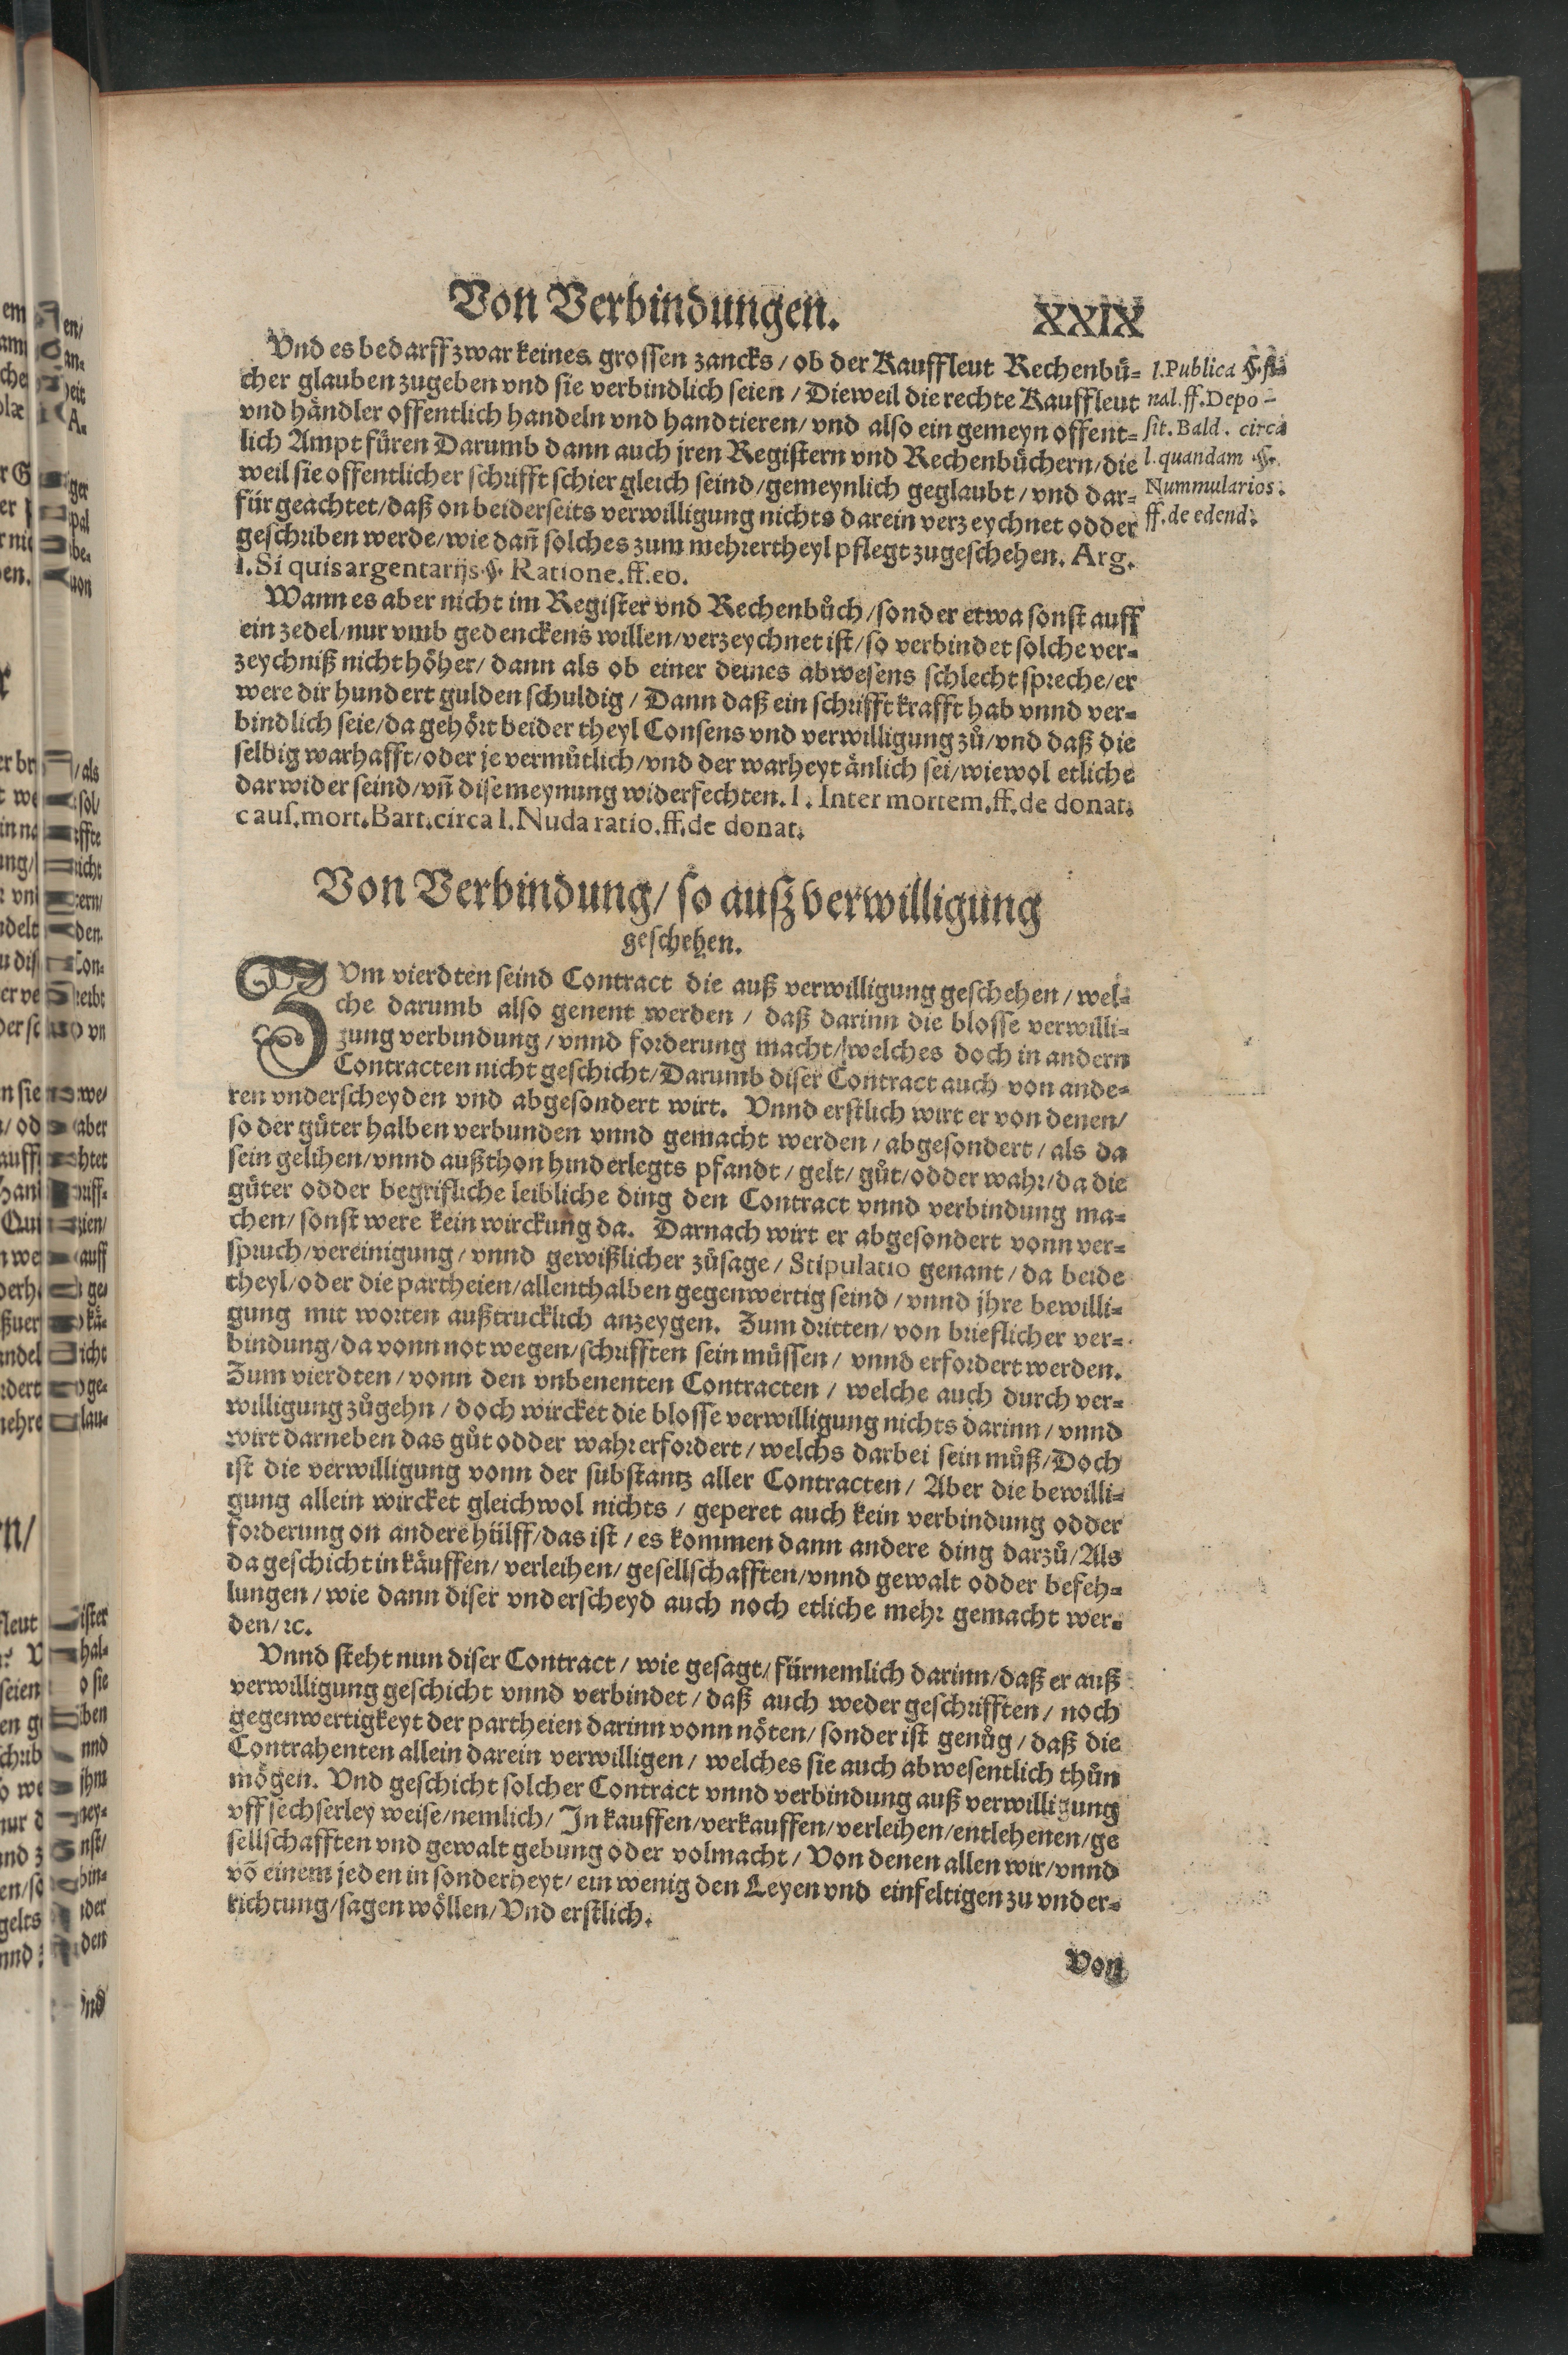 Von Verbindungen. XXIX
Vnd es bedarff zwar keines grossen zancks / ob der Kauffleut Rechenbuͤ-
cher glauben zugeben vnd sie verbindlich seien / Dieweil die rechte Kauffleut
vnd haͤndler offentlich handeln vnd handtieren / vnd also ein gemeyn offent-
lich Ampt fuͤren Darumb dann auch jren Registern vnd Rechenbuͤchern / die
weil sie offentlicher schrifft schier gleich seind / gemeynlich geglaubt / vnd dar-
fuͤr geachtet / daß on beiderseits verwilligung nichts darein verzeychnet odder
geschriben werde / wie dañ solches zum mehrertheyl pflegt zugeschehen. Arg.
l. Si quis argentarijs. §. Ratione. ff. eo.
l. Publica §. fi-
nal. ff. Depo-
sit. Bald. circa
l. quandam §.
Nummularios.
ff. de edend.
Wann es aber nicht im Register vnd Rechenbuͦch / sonder etwa sonst auff
ein zedel / nur vmb gedenckens willen / verzeychnet ist / so verbindet solche ver-
zeychniß nicht hoͤher / dann als ob einer deines abwesens schlecht spreche / er
were dir hundert gulden schuldig / Dann daß ein schrifft krafft hab vnnd ver-
bindlich seie / da gehoͤrt beider theyl Consens vnd verwilligung zuͦ / vnd daß die
selbig warhafft / oder je vermuͦtlich / vnd der warheyt aͤnlich sei / wiewol etliche
darwider seind / vñ dise meynung widerfechten. l. Inter mortem. ff. de donat.
caus. mort. Bart. circa l. Nuda ratio. ff. de donat.
Von Verbindung / so ausz verwilligung
geschehen.
ZVm vierdten seind Contract die auß verwilligung geschehen / wel-
che darumb also genent werden / daß darinn die blosse verwilli-
gung verbindung / vnnd forderung macht / welches doch in andern
Contracten nicht geschicht / Darumb diser Contract auch von ande-
ren vnderscheyden vnd abgesondert wirt. Vnnd erstlich wirt er von denen /
so der guͤter halben verbunden vnnd gemacht werden / abgesondert / als da
sein gelihen / vnnd außthon hinderlegts pfandt / gelt / guͦt / odder wahr / da die
guͤter odder begrifliche leibliche ding den Contract vnnd verbindung ma-
chen / sonst were kein wirckung da. Darnach wirt er abgesondert vonn ver-
spruch / vereinigung / vnnd gewißlicher zuͦsage / Stipulatio genant / da beide
theyl / oder die partheien / allenthalben gegenwertig seind / vnnd jhre bewilli-
gung mit worten außtrucklich anzeygen. Zum dritten / von brieflicher ver-
bindung / da vonn not wegen / schrifften sein muͤssen / vnnd erfordert werden.
Zum vierdten / vonn den vnbenenten Contracten / welche auch durch ver-
willigung zuͦgehn / doch wircket die blosse verwilligung nichts darinn / vnnd
wirt darneben das guͦt odder wahr erfordert / welchs darbei sein muͦß / Doch
ist die verwilligung vonn der substantz aller Contracten / Aber die bewilli-
gung allein wircket gleichwol nichts / geperet auch kein verbindung odder
forderung on andere huͤlff / das ist / es kommen dann andere ding darzuͦ / Als
da geschicht in kaͤuffen / verleihen / gesellschafften / vnnd gewalt odder befeh-
lungen / wie dann diser vnderscheyd auch noch etliche mehr gemacht wer-
den / ꝛc.
Vnnd steht nun diser Contract / wie gesagt / fuͤrnemlich darinn / daß er auß
verwilligung geschicht vnnd verbindet / daß auch weder geschrifften / noch
gegenwertigkeyt der partheien darinn vonn noͤten / sonder ist genuͦg / daß die
Contrahenten allein darein verwilligen / welches sie auch abwesentlich thuͦn
moͤgen. Vnd geschicht solcher Contract vnnd verbindung auß verwilligung
vff sechserley weise / nemlich / In kauffen / verkauffen / verleihen / entlehenen / ge
sellschafften vnd gewalt gebung oder volmacht / Von denen allen wir / vnnd
võ einem jeden in sonderheyt / ein wenig den Leyen vnd einfeltigen zu vnder-
richtung / sagen woͤllen / Vnd erstlich.
Von